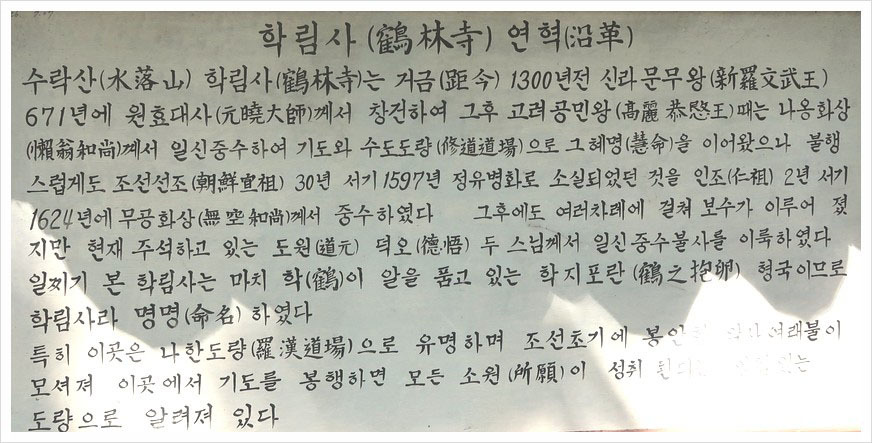 학림사(鶴林寺) 연혁(沿革)
수락산(水落山) 학림사(鶴林寺)는 거금(距今) 1300년전 신라문무왕(新羅文武王)
671년에 원효대사(元曉大師)께서 창건하여 그후 고려공민왕(高麗恭愍王)때는 나옹화상
(懶翁和尚)께서 일신중수하여 기도와 수도도량(修道道場)으로 그혜명(慧命)을 이어왔으나 불행
스럽게도 조선선조(朝鮮宣祖) 30년 서기1597년 정유병화로 소실되었던 것을 인조(仁祖) 2년 서기
1624년에 무공화상(無空和尚)께서 중수하였다 그후에도 여러차례에 걸쳐 보수가 이루어 졌
지만 현재 주석하고 있는 도원(道元) 덕오(德悟) 두 스님께서 일신중수불사를 이룩하였다
일찌기 본 학림사는 마치 학(鶴)이 알을 품고 있는 학지포란(鶴之抱卵) 형국이므로
학림사라 명명(命名)하였다
특히 이곳은 나한도량(羅漢道場)으로 유명하며 조선초기에 봉안 여래불이
모셔져 이곳에서 기도를 봉행하면 모든 소원(所願)이 성취
도량으로 알려져 있다